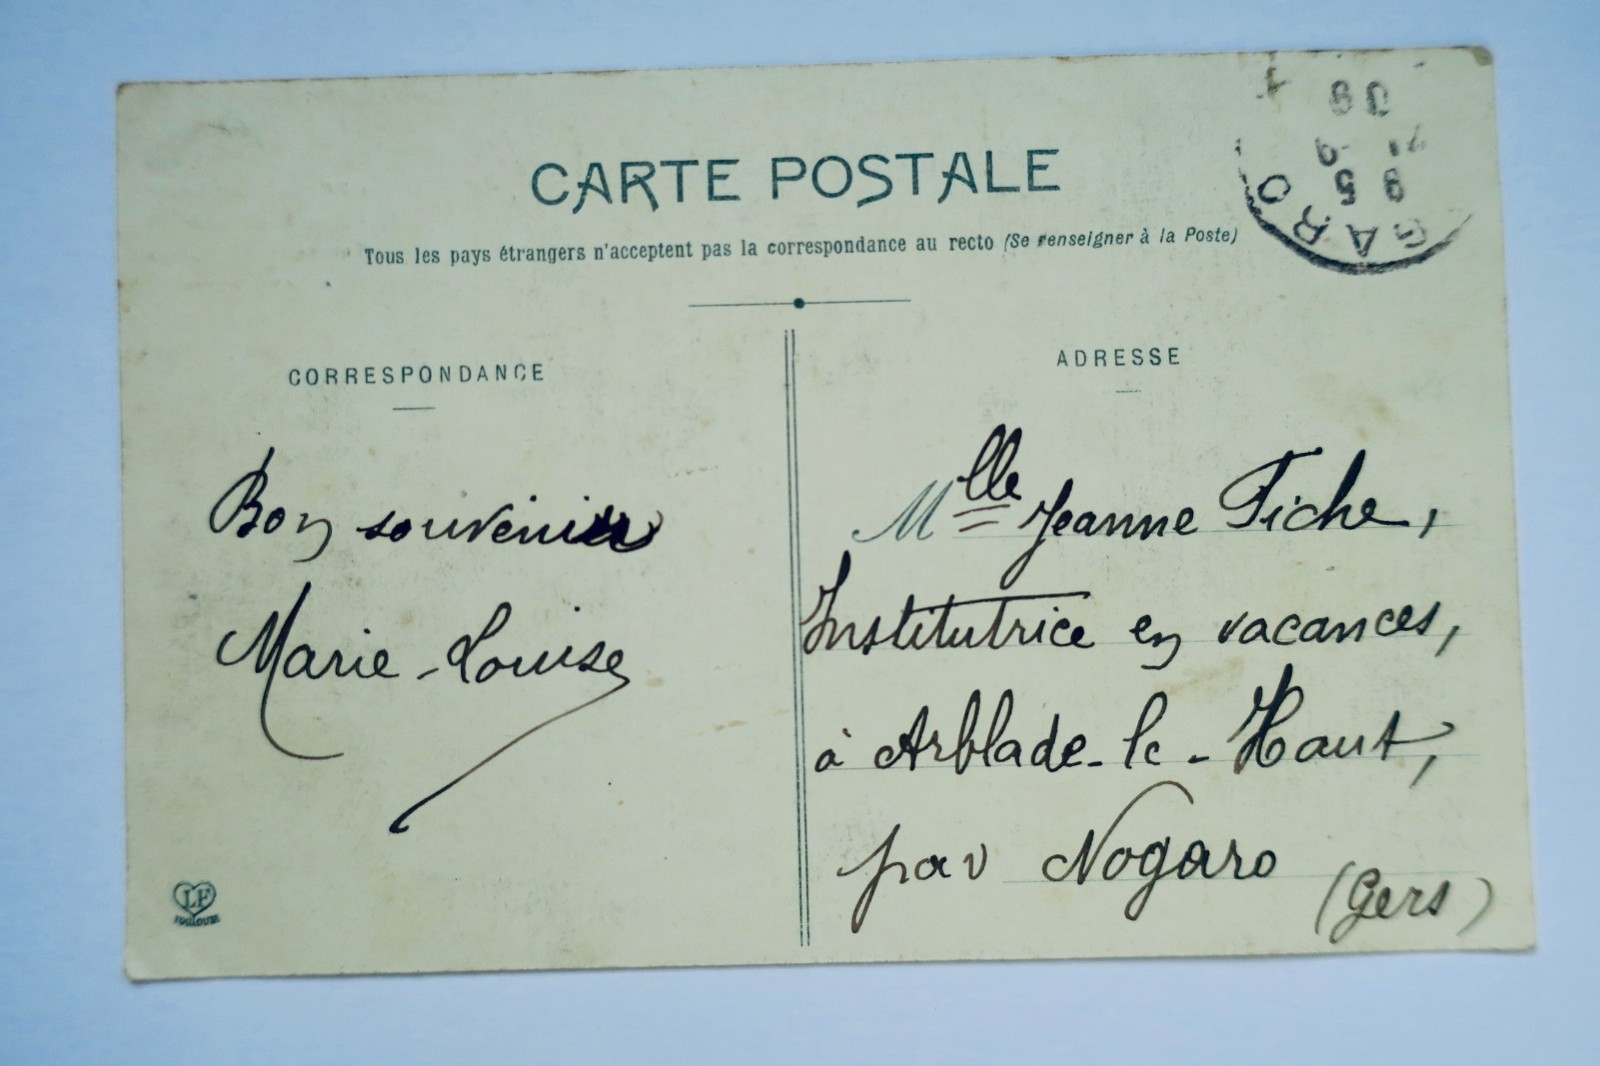 CARTE POSTALE
Tous les pays étrangers n'acceptent pas la correspondance au recto (Se renseigner à la Poste)
GARO
CORRESPONDANCE
Bon souvenir
Marie-Louise
LF
TOULOUSE
ADRESSE
Mlle Jeanne Fiche,
Institutrice en vacances,
à Arblade-le-Haut,
par Nogaro
(Gers)